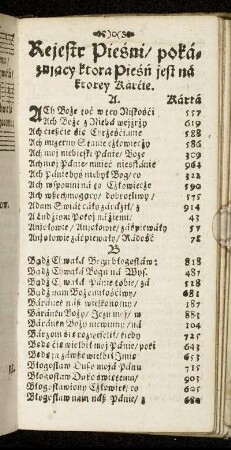 Rejestr Pieśni / poká-
zujący ktora Pieśń jest ná
ktorey Karćie.
A. Kártá
ACh Boże toć w tey Niskośći 557
Ach Boże z Niebá weyżrzy 619
Ach ćieszćie się Chrześćiánie 588
Ach mizerny Stanie człowieczy 586
Ach moy niebieski Pánie / Boże 309
Ach moy Pánie niemieć nieustánie 964
Ach Pánie byś niechył Bog / co 322
Ach wspomni ná to Człowiecze 590
Ach wszechmogący / dobrotliwy 575
Adam Swiát cáły zdrádźił / z 914
A Ludźiom Pokoy ná źiemi / 43
Aniołowie / Aniołowie / záśpiewały 57
Aniołowie záśpiewáły / Rádość 78
B
Bądź Chwałá Bogu błogosław: 818
Bądź Chwałá Bogu ná Wys. 487
Bądź Chwałá Pánie tobie / zá 518
Bądź nam Boże miłośćiwy / 681
Báránek nász wielkonocny / 187
Báránku Boży / Jezu moy / w 883
Báránku Boży niewinny / ná 104
Bárzom się rozweselił / kiedy 725
Będę ćię wielbił moy Pánie / poki 643
Będę ja záwsze wielbił Jmię 653
Błogosław Duszo mojá Pánu 715
Błogosław Duszo święćiemu / 903
Błogosławiony Człowiek / co 605
Błogosław nam nász Pánie / z 680